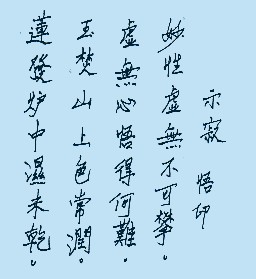 示寂　悟印
妙性虛無不可攀。
虛無心悟得何難。
玉焚山上色常潤。
蓮發炉中濕未乾。